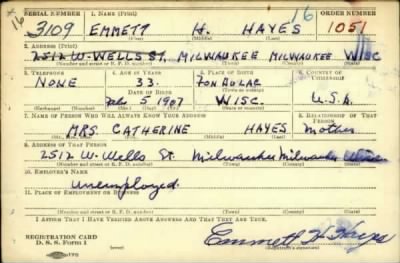 SERIAL NUMBER 1. NAME (Print) ORDER NUMBER
16 3109 EMMETT H. HAYES 16 1051
(First) (Middle) (Last)
2. ADDRESS (Print)
2512 W. WELLS ST. MILWAUKEE MILWAUKEE WISC
(Number and street or R. F. D. number) (Town) (County) (State)
3. TELEPHONE 4. AGE IN YEARS 5. PLACE OF BIRTH 6. COUNTRY OF CITIZENSHIP
NONE 33. FON DU LAC
DATE OF BIRTH (Town or county)
5 1907 WISC. U.S.A.
(Exchange) (Number) (Mo.) (Day) (Yr.) (State or country)
7. NAME OF PERSON WHO WILL ALWAYS KNOW YOUR ADDRESS 8. RELATIONSHIP OF THAT PERSON
MRS. CATHERINE HAYES Mother
(Mr., Mrs., Miss) (First) (Middle) (Last)
9. ADDRESS OF THAT PERSON
2512 W. Wells St. Milwaukee Milwaukee
(Number and street or R. F. D. number) (Town) (County) (State)
10. EMPLOYER'S NAME
Unemployed.
11. PLACE OF EMPLOYMENT OR BUSINESS
(Number and street or R. F. D. number) (Town) (County) (State)
I AFFIRM THAT I HAVE VERIFIED ABOVE ANSWERS AND THAT THEY ARE TRUE.
REGISTRATION CARD
D. S. S. Form 1 Emmett H Hayes
(Registrant's signature)